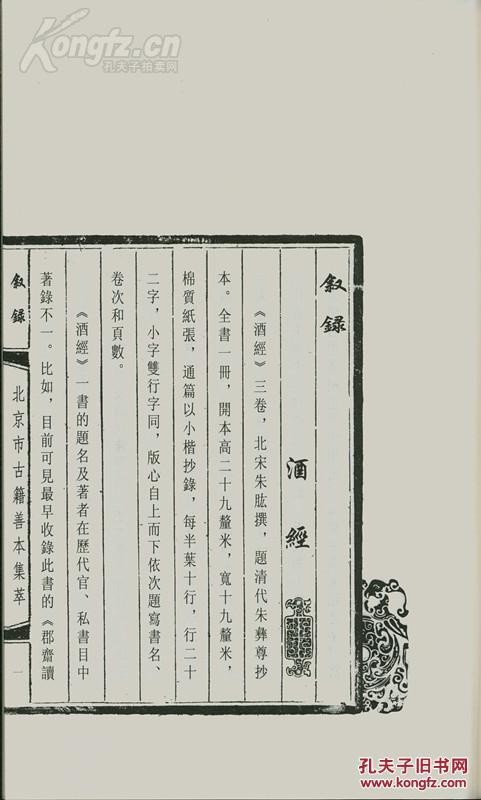 Kongfz.cn
孔夫子拍卖网
敘錄
酒經
《酒經》三卷，北宋朱肱撰，題清代朱彝尊抄
本。全書一冊，開本高二十九釐米，寬十九釐米，
棉質紙張，通篇以小楷抄錄，每半葉十行，行二十
二字，小字雙行字同，版心自上而下依次題寫書名、
卷次和頁數。
《酒經》一書的題名及著者在歷代官、私書目中
著錄不一。比如，目前可見最早收錄此書的《郡齋讀
敘錄
北京市古籍善本集萃
一
孔夫子旧书网
www.kongfz.com